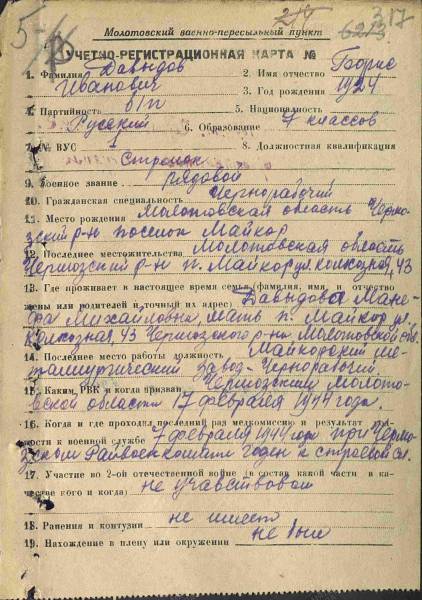 5-
317
Молотовский военно-пересыльный пункт
УЧЕТНО-РЕГИСТРАЦИОННАЯ КАРТА №
1. Фамилия Давыдов 2. Имя отчество Борис
Иванович 3. Год рождения 1924
4. Партийность б/п 5. Национальность
Русский 6. Образование 7 классов
7. № ВУС 1 8. Должностная квалификация
Стрелок
9. Военное звание рядовой
10. Гражданская специальность Чернорабочий
11. Место рождения Молотовская область Чермо
зский р-н поселок Майкор
12. Последнее местожительства Молотовская область
Чермозский р-н п. Майкор ул. колхозная, 43
13. Где проживает в настоящее время семья (фамилия, имя, и отчество
жены или родителей и точный их адрес) Давыдова Мане-
фа Михайловна, мать п. Майкор ул.
Колхозная, 43 Чермозского р-на Молотовской обл.
14. Последнее место работы должность Майкорский ме-
таллургический завод-Чернорабочий
15. Каким РВК и когда призван Чермозским Молото-
вской области 17 февраля 1944 года.
16. Когда и где проходил последний раз медкомиссию и результат
ности к военной службе 7 февраля 1944 года при Чермо-
зском Райвоенкомате годен к строевой сл.
17. Участие во 2-ой отечественной войне (в состав какой части в ка-
честве кого и когда) не учавствовал
18. Ранения и контузии не имеет
19. Нахождение в плену или окружении не был